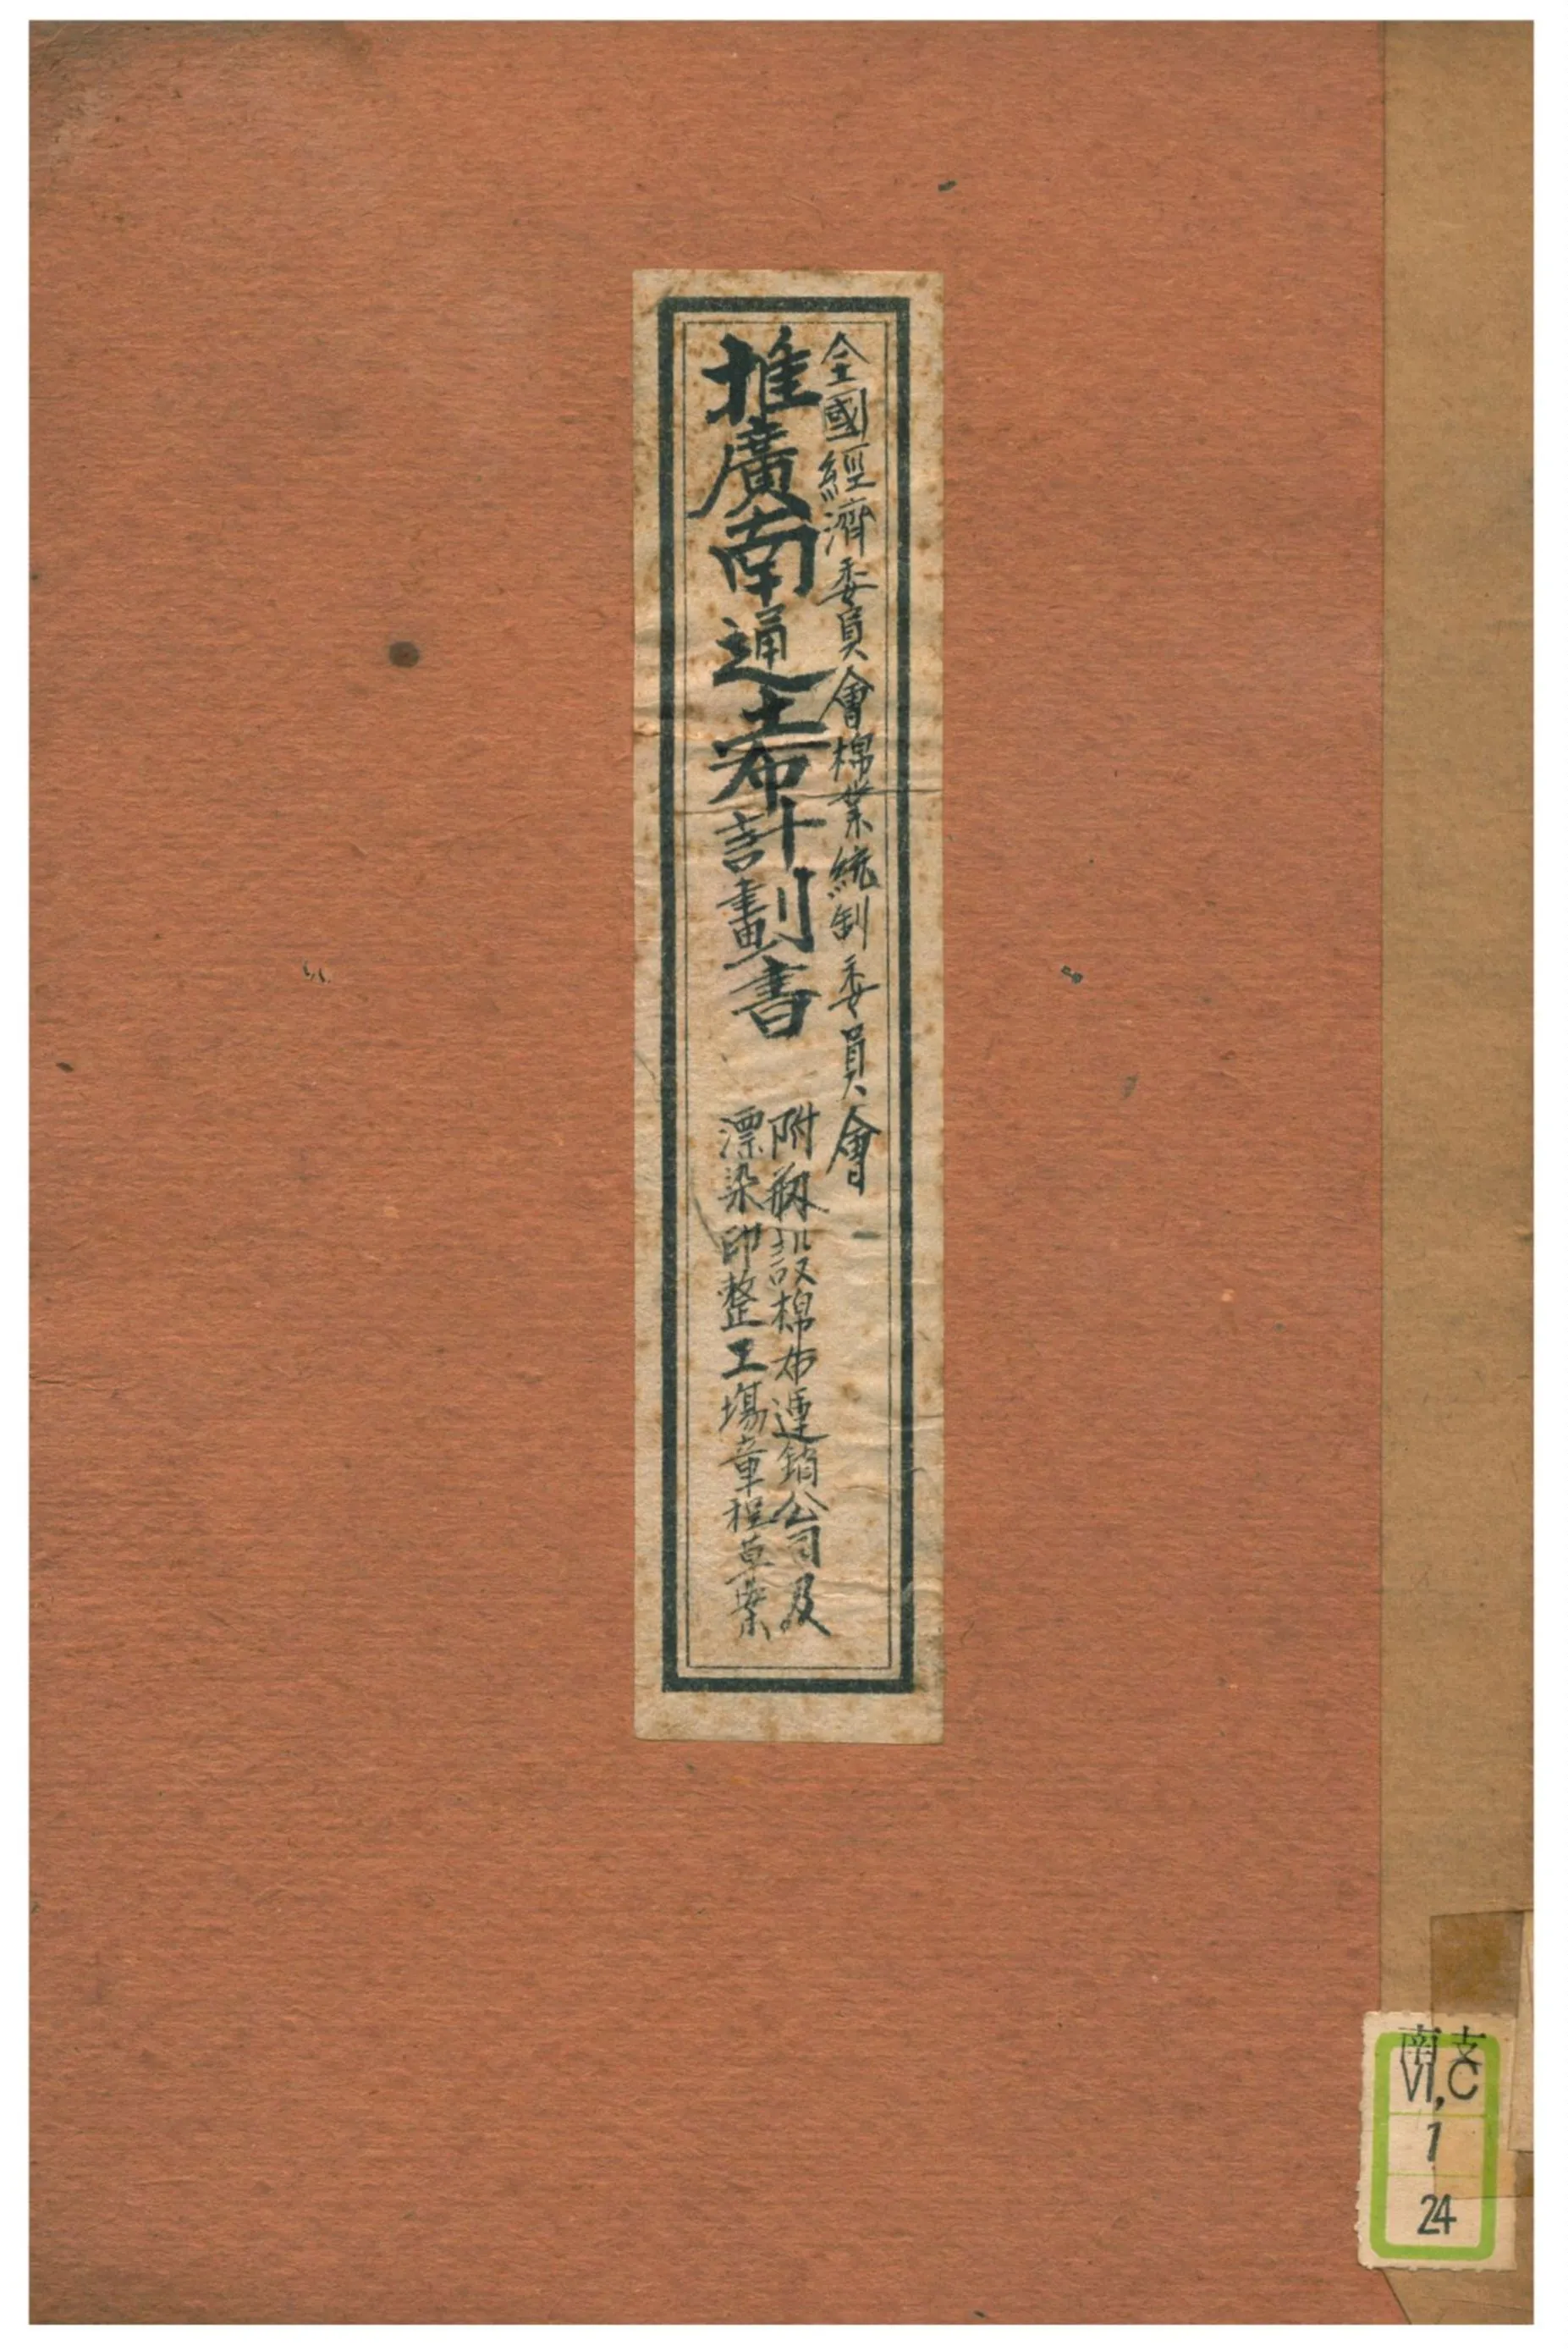 全國經濟委員會棉業統制委員會
推廣南通土布計劃書
附籾設棉布運銷公司及
漂染印整工場章程草案
南支
VI,C
1
24